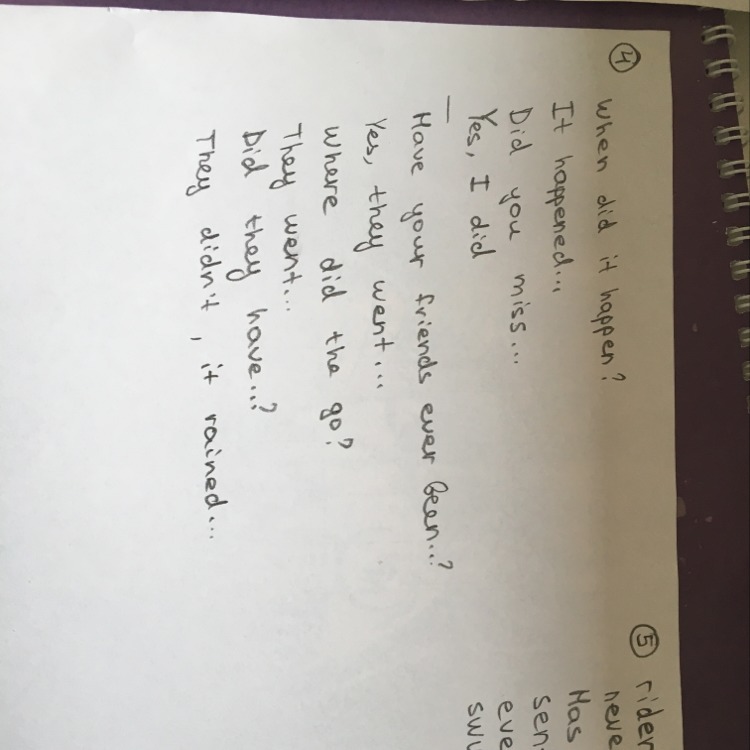 ④ When did it happen?
It happened...
Did you miss...
Yes, I did
—
Have your friends ever been...?
Yes, they went...
Where did the go?
They went...
Did they have...?
They didn't, it rained...
⑤ rider
neve
Has
sen
eve